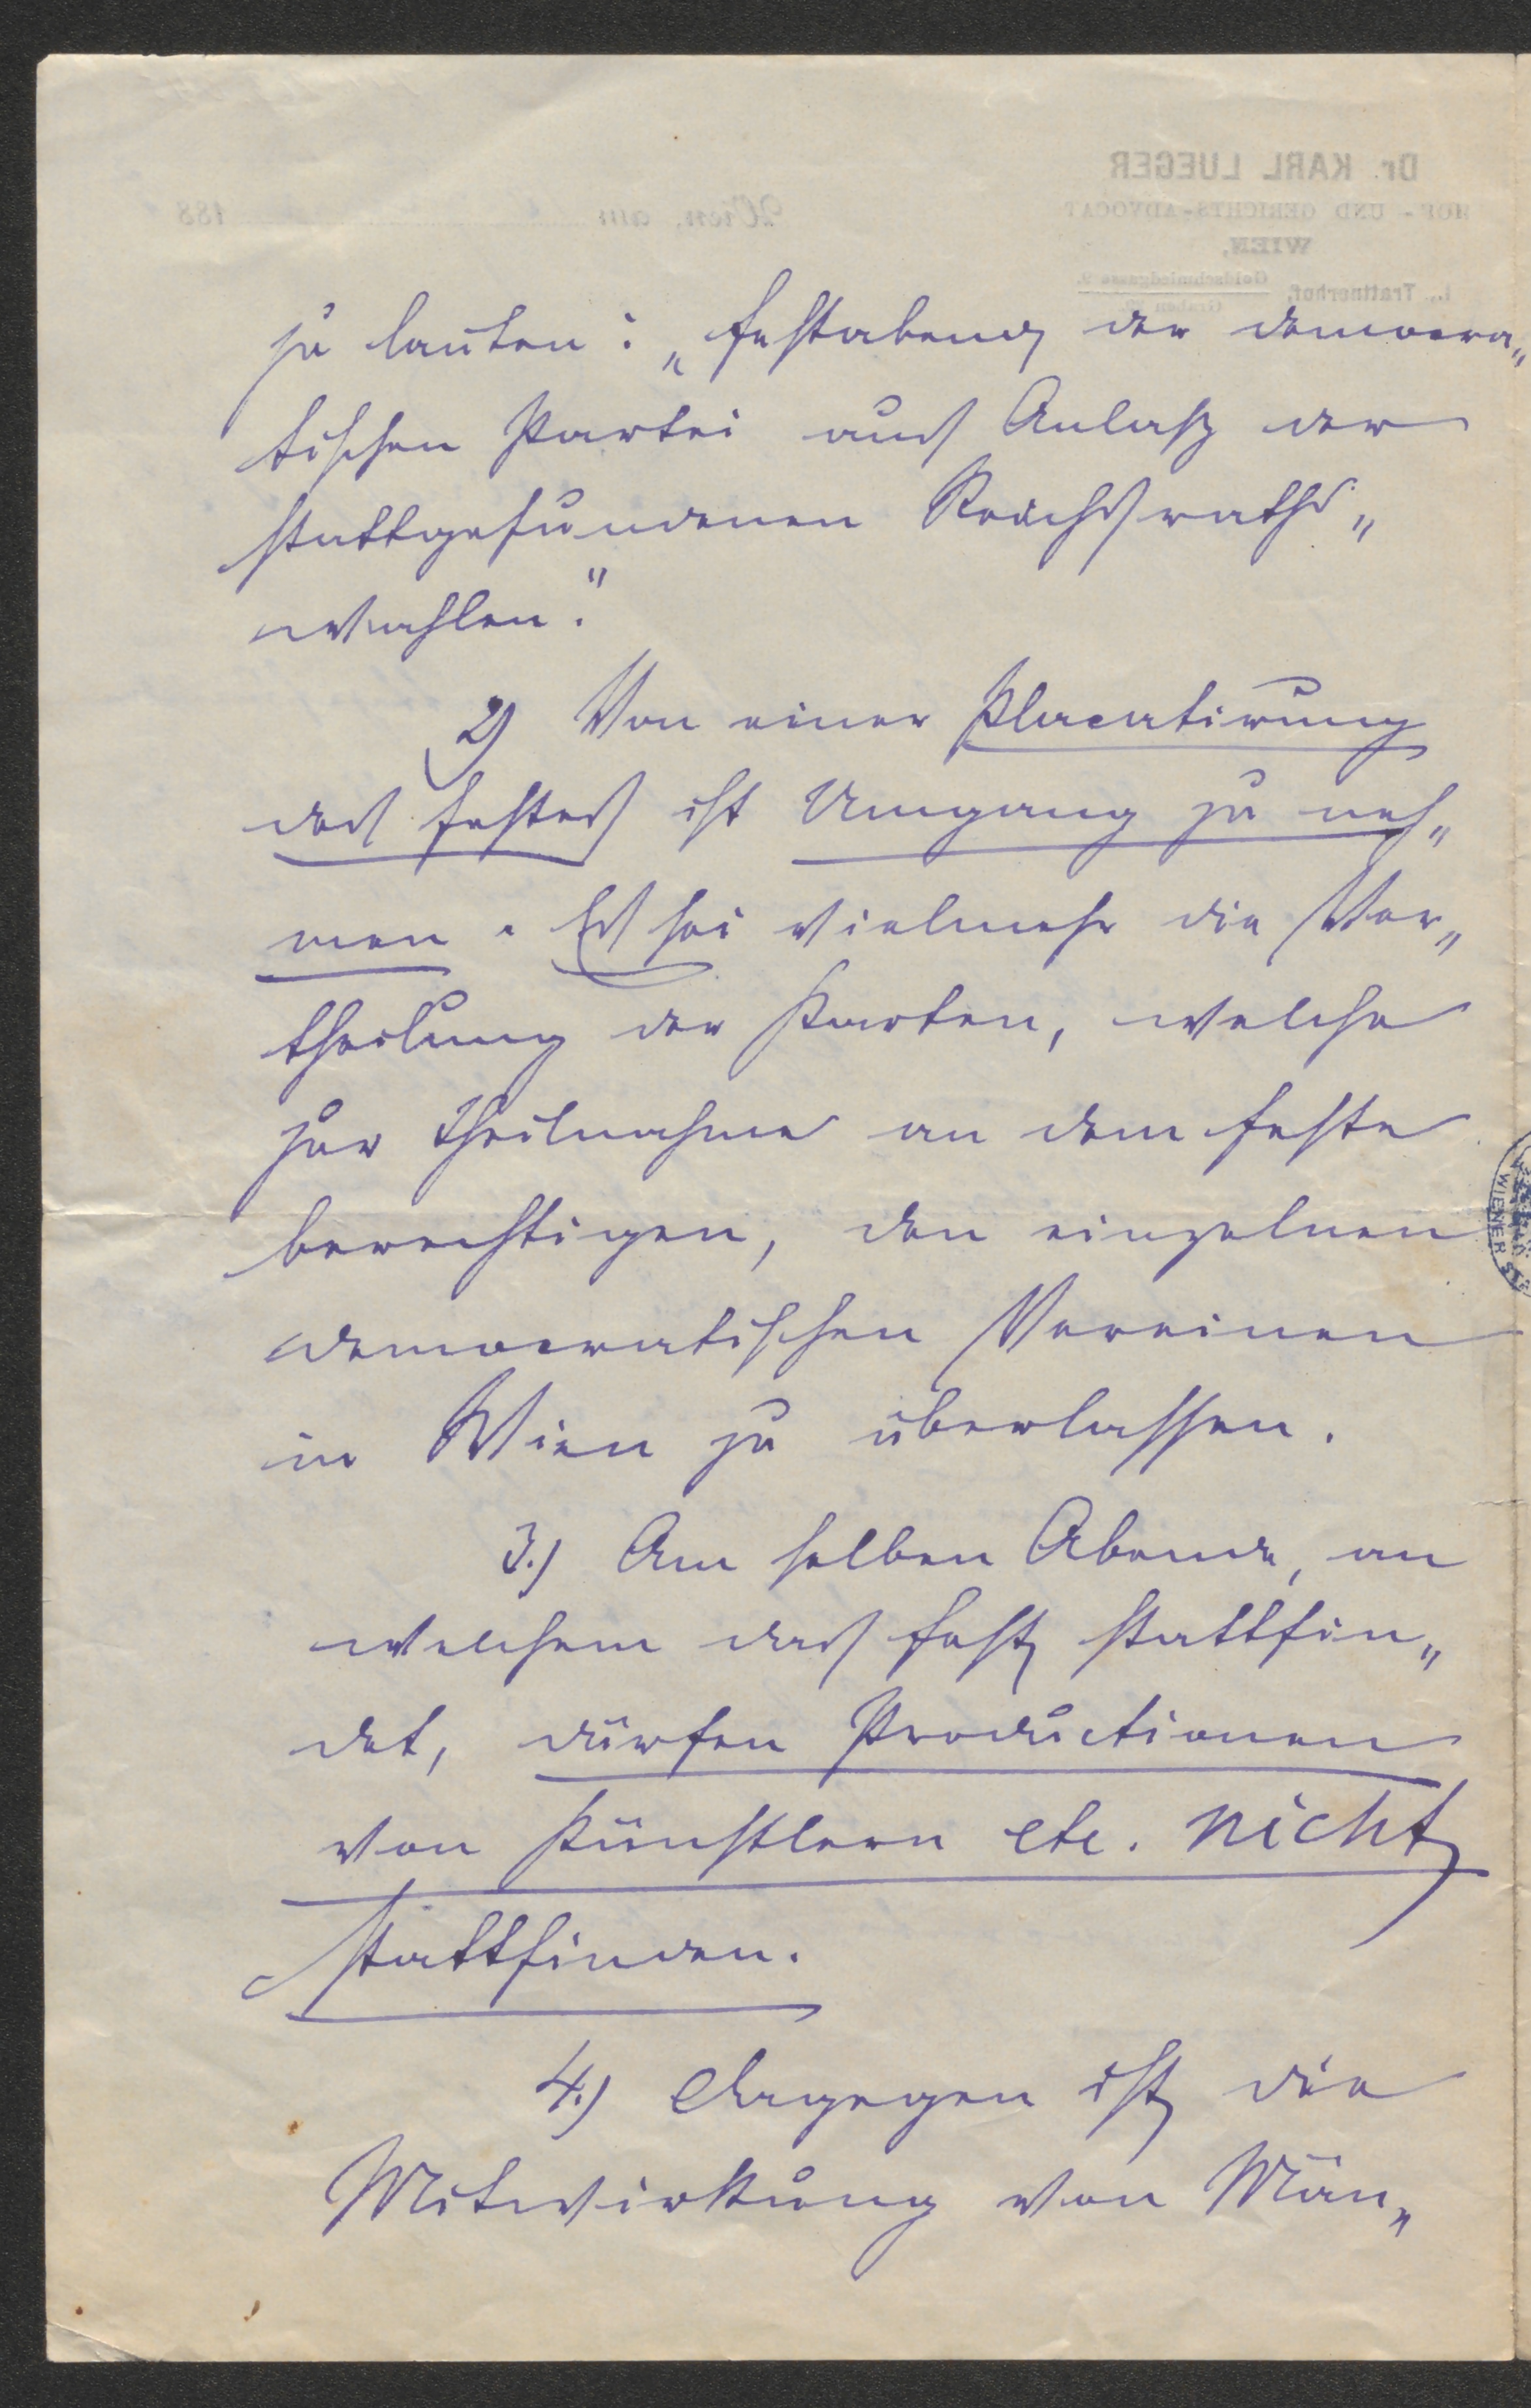 Dr. KARL LUEGER
HOF- UND GERICHTS-ADVOCAT
WIEN,
I., Trattnerhof, Goldschmiedgasse 9.
Graben 29
Wien, am 188
zu lauten: „Festabend der democra„
tischen Partei aus Anlaß der
stattgefundenen Reichsraths„
wahlen."
2) Von einer Placatirung
des Festes ist Umgang zu neh„
men. Es sei vielmehr die Ver„
theilung der Karten, welche
zur Theilnahme an dem Feste
berechtigen, den einzelnen
democratischen Vereinen
in Wien zu überlassen.
3.) Am selben Abende, an
welchem das Fest stattfin„
det, dürfen Productionen
von Künstlern etc. nicht
stattfinden.
4.) Dagegen ist die
Mitwirkung von Män„
WIENER